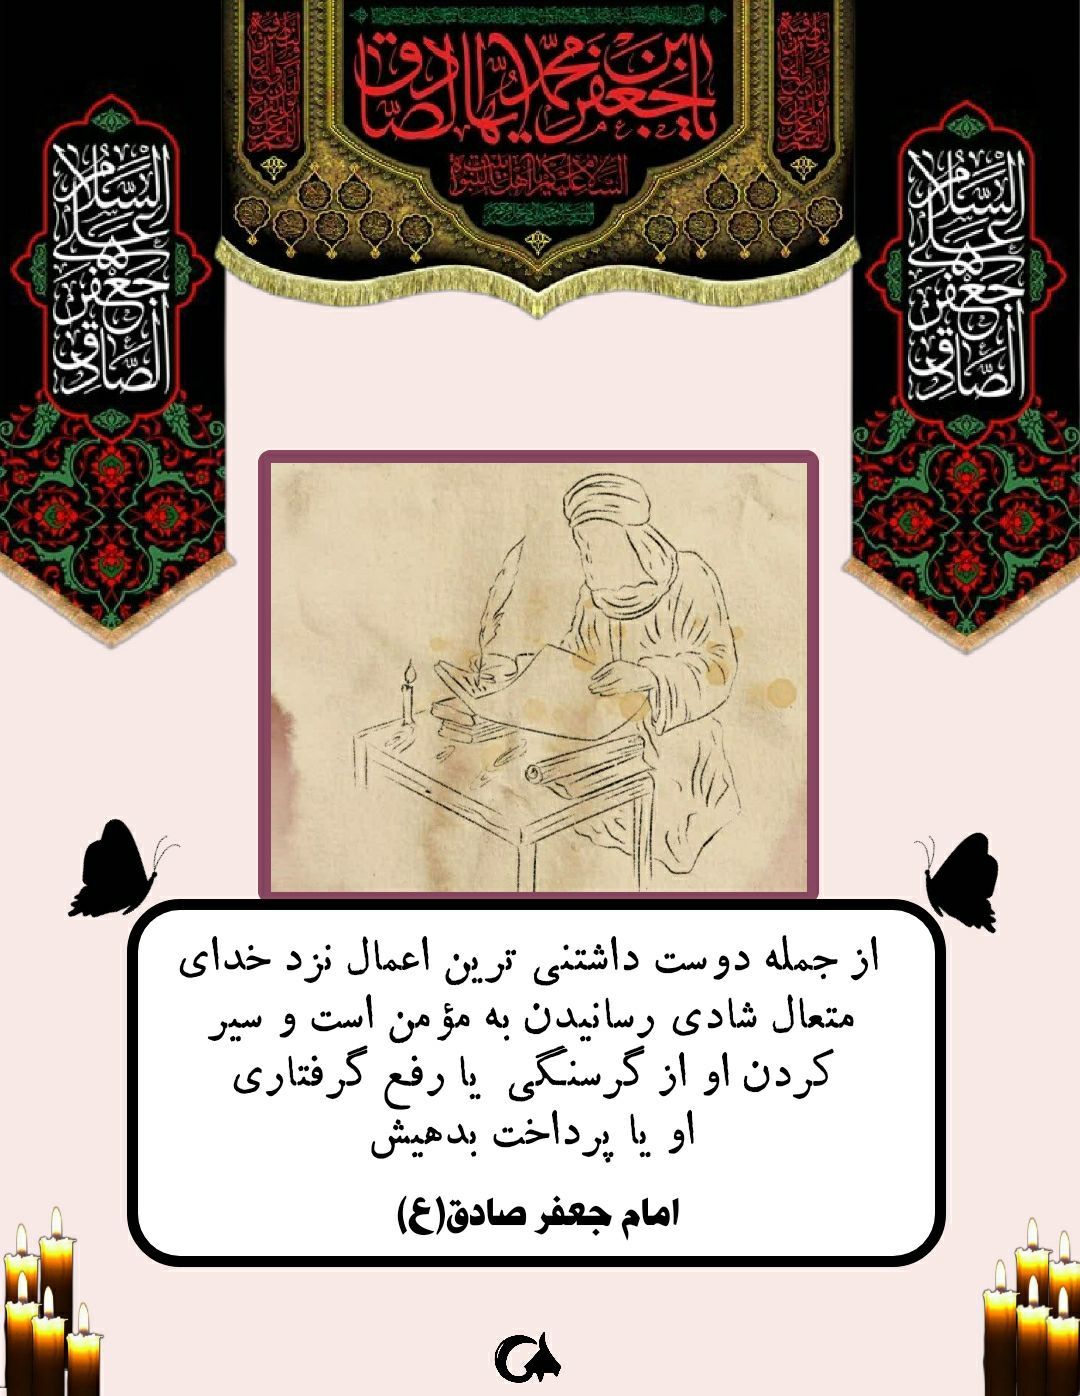 یا جعفر بن محمد ایها الصادق
السلام علیکم یا اهل بیت النبوة
السلام
علی
جعفر
الصادق
السلام
علی
جعفر
الصادق
از جمله دوست داشتنی ترین اعمال نزد خدای
متعال شادی رسانیدن به مؤمن است و سیر
کردن او از گرسنگی یا رفع گرفتاری
او یا پرداخت بدهیش
امام جعفر صادق(ع)